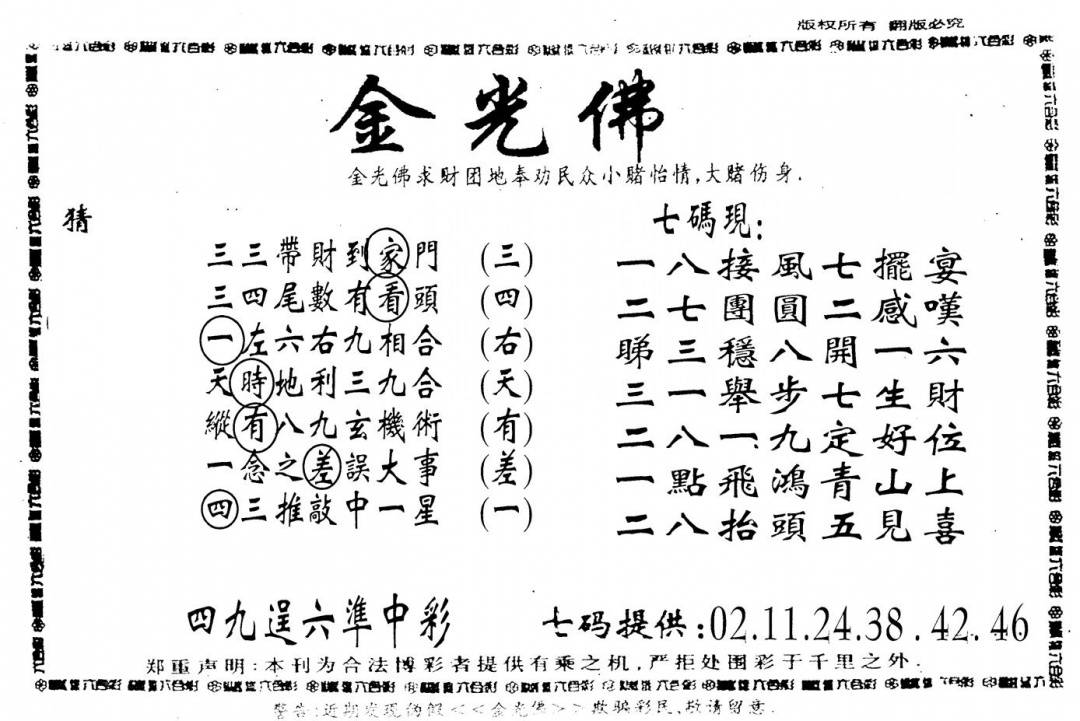 版权所有 翻版必究
金光佛
金光佛求财团地奉劝民众小赌怡情,大赌伤身.
猜
三三帶財到家門 (三)
三四尾數有看頭 (四)
一左六右九相合 (右)
天時地利三九合 (天)
縱有八九玄機術 (有)
一念之差誤大事 (差)
四三推敲中一星 (一)
七碼現:
一八接風七擺宴
二七團圓二感嘆
睇三穩八開一六
三一舉步七生財
二八一九定好位
一點飛鴻青山上
二八抬頭五見喜
四九逞六準中彩
七码提供:02.11.24.38.42.46
郑重声明:本刊为合法博彩者提供有乘之机,严拒处围彩于千里之外.
警告:近期发现的假<<金光佛>>欺骗彩民,敬请留意.